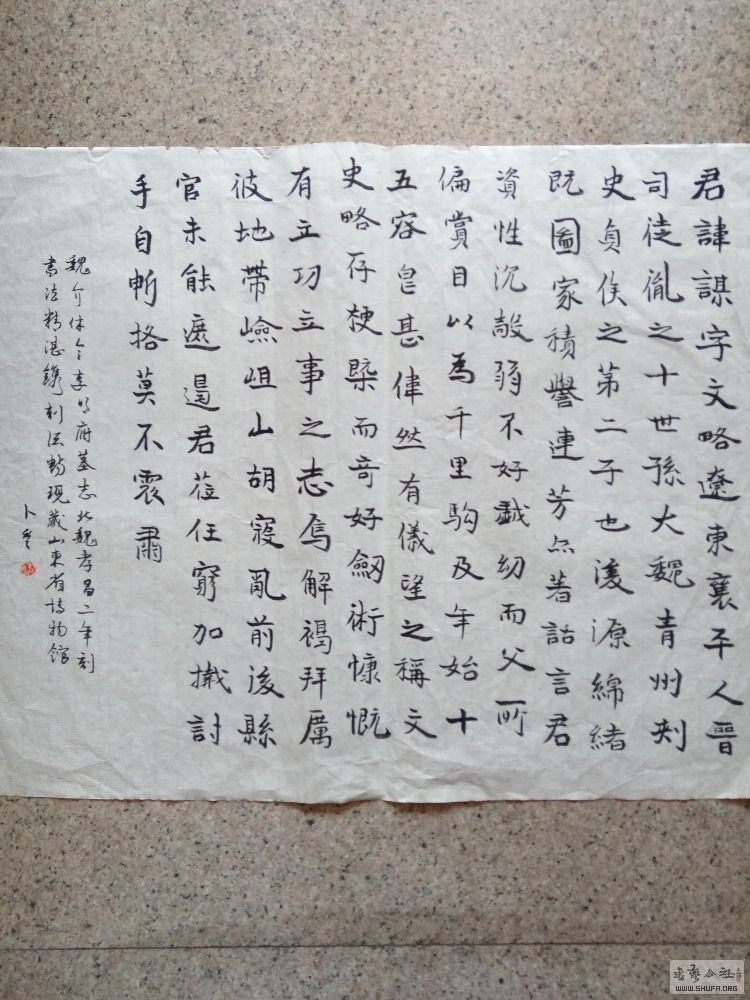 君諱謀字文略遼東襄平人晉
司徒胤之十世孫大魏青州刺
史貞侯之第二子也浚源綿緒
既圖家積譽連芳点著話言君
資性沉敞弱不好戯幼而父所
偏賞目以為千里駒及年始十
五容皃甚偉然有儀望之稱文
史略存梗槩而奇好劒術慷慨
有立功立事之志焉解褐拜厲
彼地帶嶮岨山胡寇亂前後縣
官未能遮遏君莅任窮加擒討
手自斬格莫不震肅
魏介休令李明府墓志北魏孝昌二年刻
書法精湛鐫刻流暢現藏山東省博物館
书艺公社
WWW.SHUFA.ORG